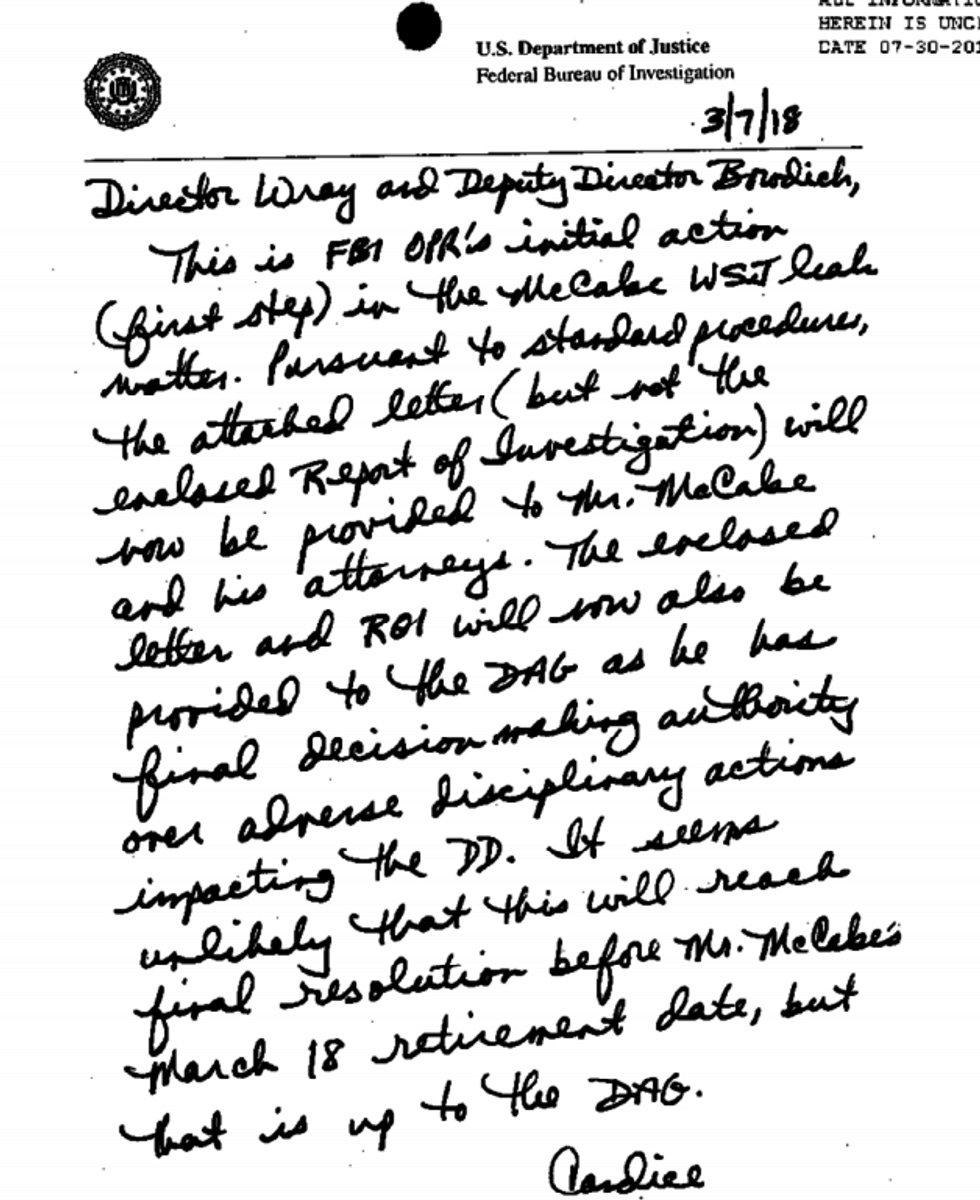 ALL INFORMATIO
HEREIN IS UNCL
DATE 07-30-201
U.S. Department of Justice
Federal Bureau of Investigation
3/7/18
Director Wray and Deputy Director Bowdich,
This is FBI OPR's initial action
(first step) in the McCabe WSJ leak
matter. Pursuant to standard procedures,
the attached letter (but not the
enclosed Report of Investigation) will
now be provided to Mr. McCabe
and his attorneys. The enclosed
letter and ROI will now also be
provided to the DAG as he has
final decision making authority
over adverse disciplinary actions
impacting the DD. It seems
unlikely that this will reach
final resolution before Mr. McCabe's
March 18 retirement date, but
that is up to the DAG.
Candice